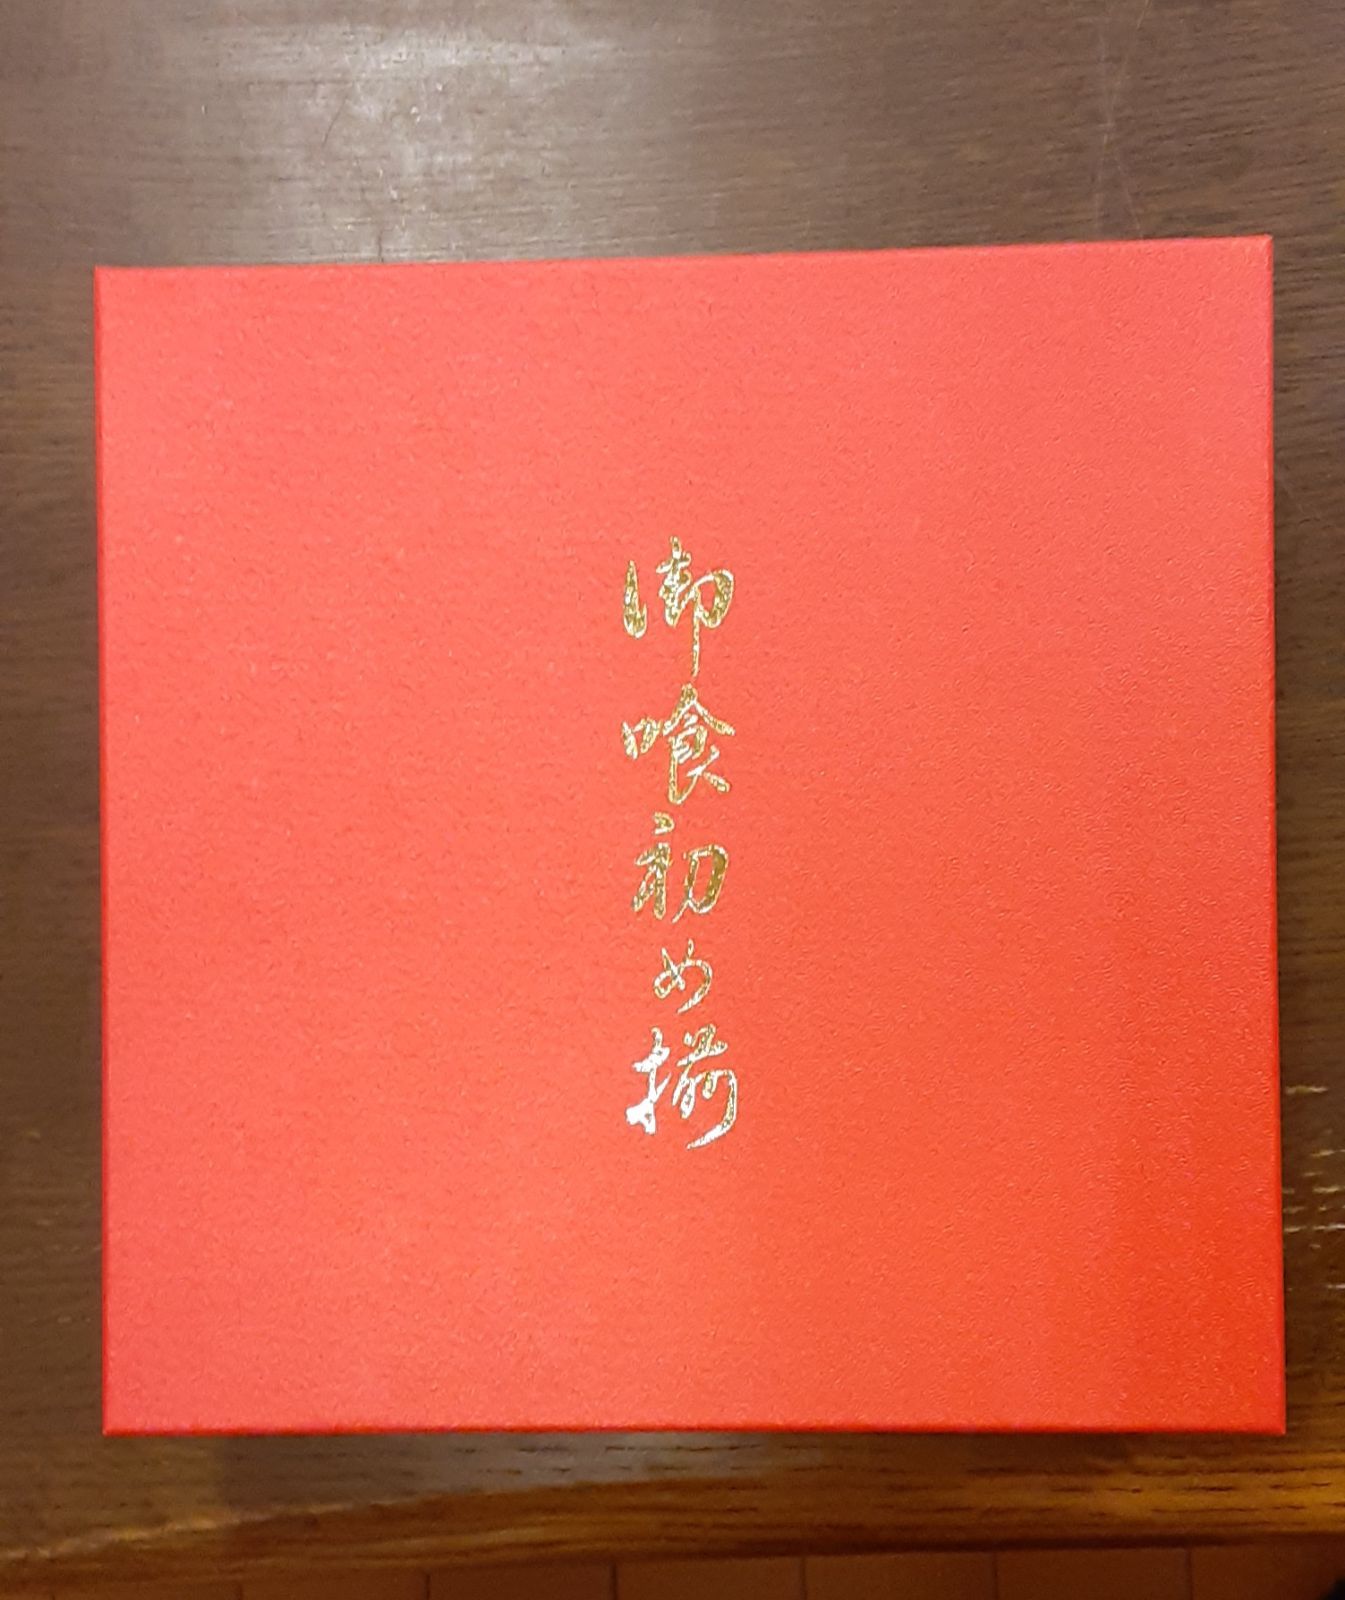 御喰初め揃